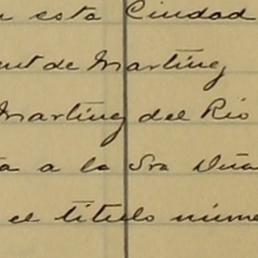 esta Ciudad
de Martinz
Martinz del Rio
a la Sra Dña
el titulo núme